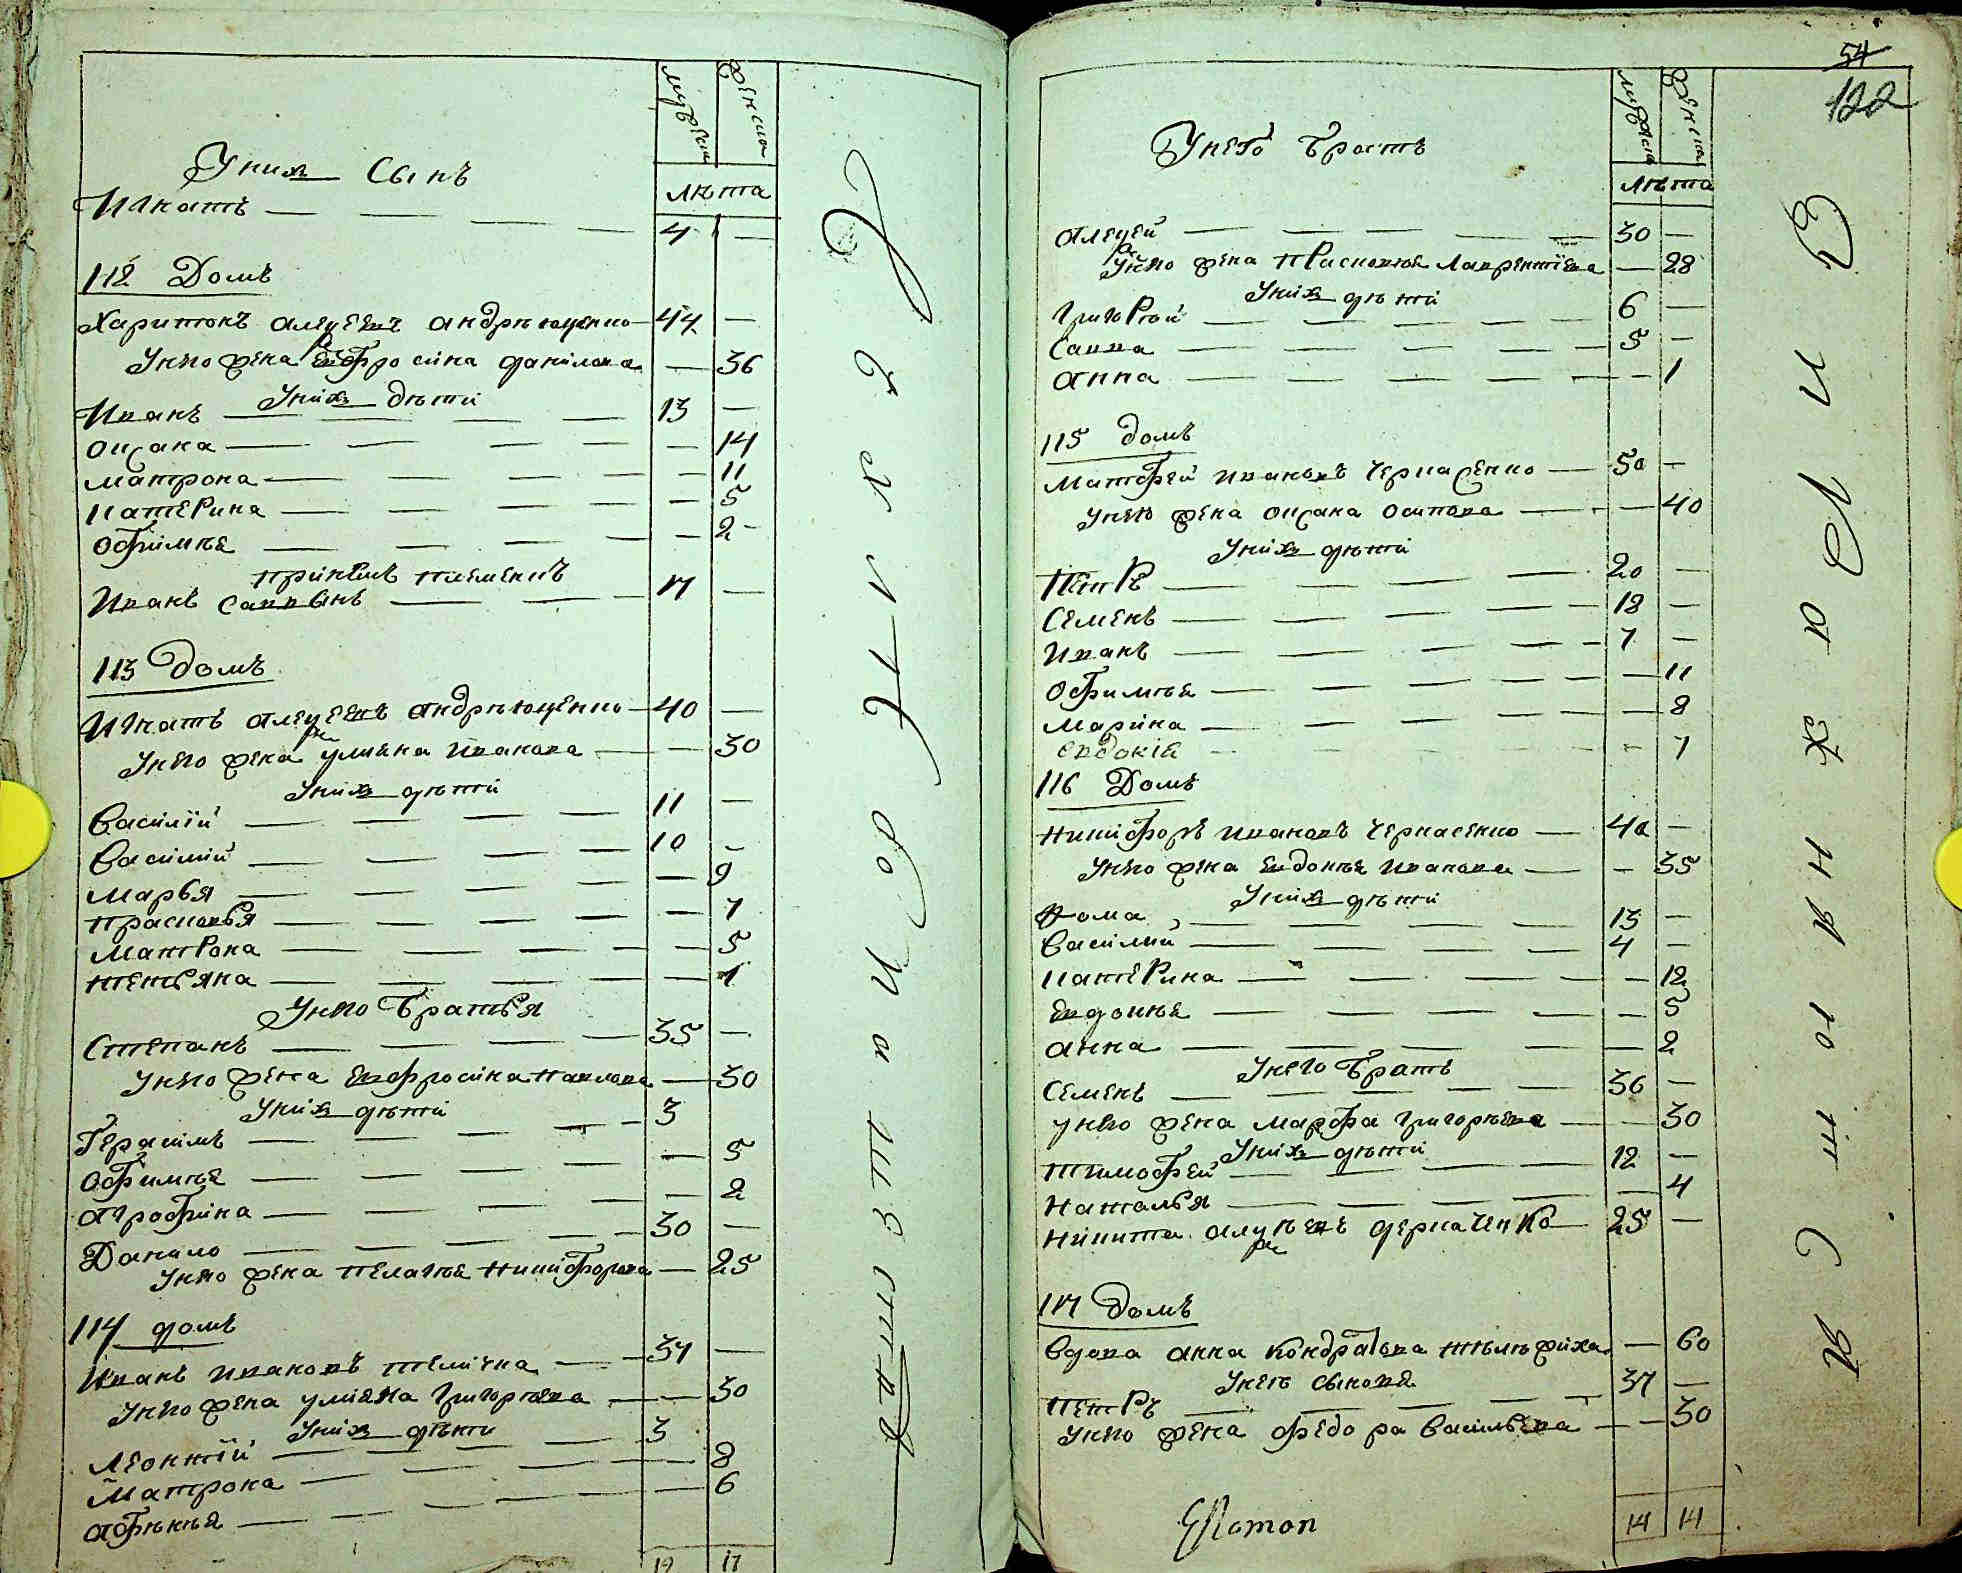 мужеска
женска
лѣта
У них Сынъ
Игнатъ 4 —
112 Домъ
Харитонъ Алеξеевъ Андрѣющенко 44 —
У него жена Евфросина Данилова — 36
У них дѣти
Иванъ 13 —
Оксана — 14
Матрона — 11
Катерина — 5
Офимѣя — 2
Иванъ Саввинъ 17 —
113 Домъ
Игнатъ Алеξеевъ Андрѣющенко 40 —
У него жена Улияна Иванова — 30
У них дѣти
Василій 11 —
Василий 10 —
Марья — 9
Прасковья — 7
Матрона — 5
Тетьяна — 1
У него Братья
Степанъ 35 —
У него жена Евфросина Павлова — 30
У них дѣти
Герасимъ 3
Офимѣя — 5
Агрофина — 2
Данило 30 —
У него жена Пелагѣя Никифорова — 25
114 домъ
Иванъ Ивановъ Теличка 37 —
У него жена Улияна Григорѣева — 30
У них дѣти
Леонтій 3
Матрона — 8
Афѣнья — 6
19 17
54
122
мужеска
женска
лѣта
У него Братъ
Алеξей 30 —
У него жена Прасковѣя Лаврентіева — 28
У них дѣти
Григорий 6 —
Савва 5 —
Анна — 1
115 домъ
Матфей Ивановъ Черкасенко 50 —
У него жена Оксана Осипова — 40
У них дѣти
Петръ 20 —
Семенъ 18 —
Иванъ 7 —
Офимѣя — 11
Марина — 8
Евдокія — 7
116 Домъ
Никифоръ Ивановъ Черкасенко 40 —
У него жена Евдокѣя Иванова — 35
У них дѣти
Фома 13 —
Василий 4 —
Катерина — 12
Евдокѣя — 5
Анна — 2
У него Братъ
Семенъ 36 —
У него жена Марфа Григорѣева — 30
У них дѣти
Тимофей 12 —
Наталья — 4
Никита Алуξѣевъ Деркаченко 25 —
117 Домъ
Вдова Анна Кондратьева — 60
У нее сыновя
Петръ 37 —
У него жена Федора Васильева — 30
14 14